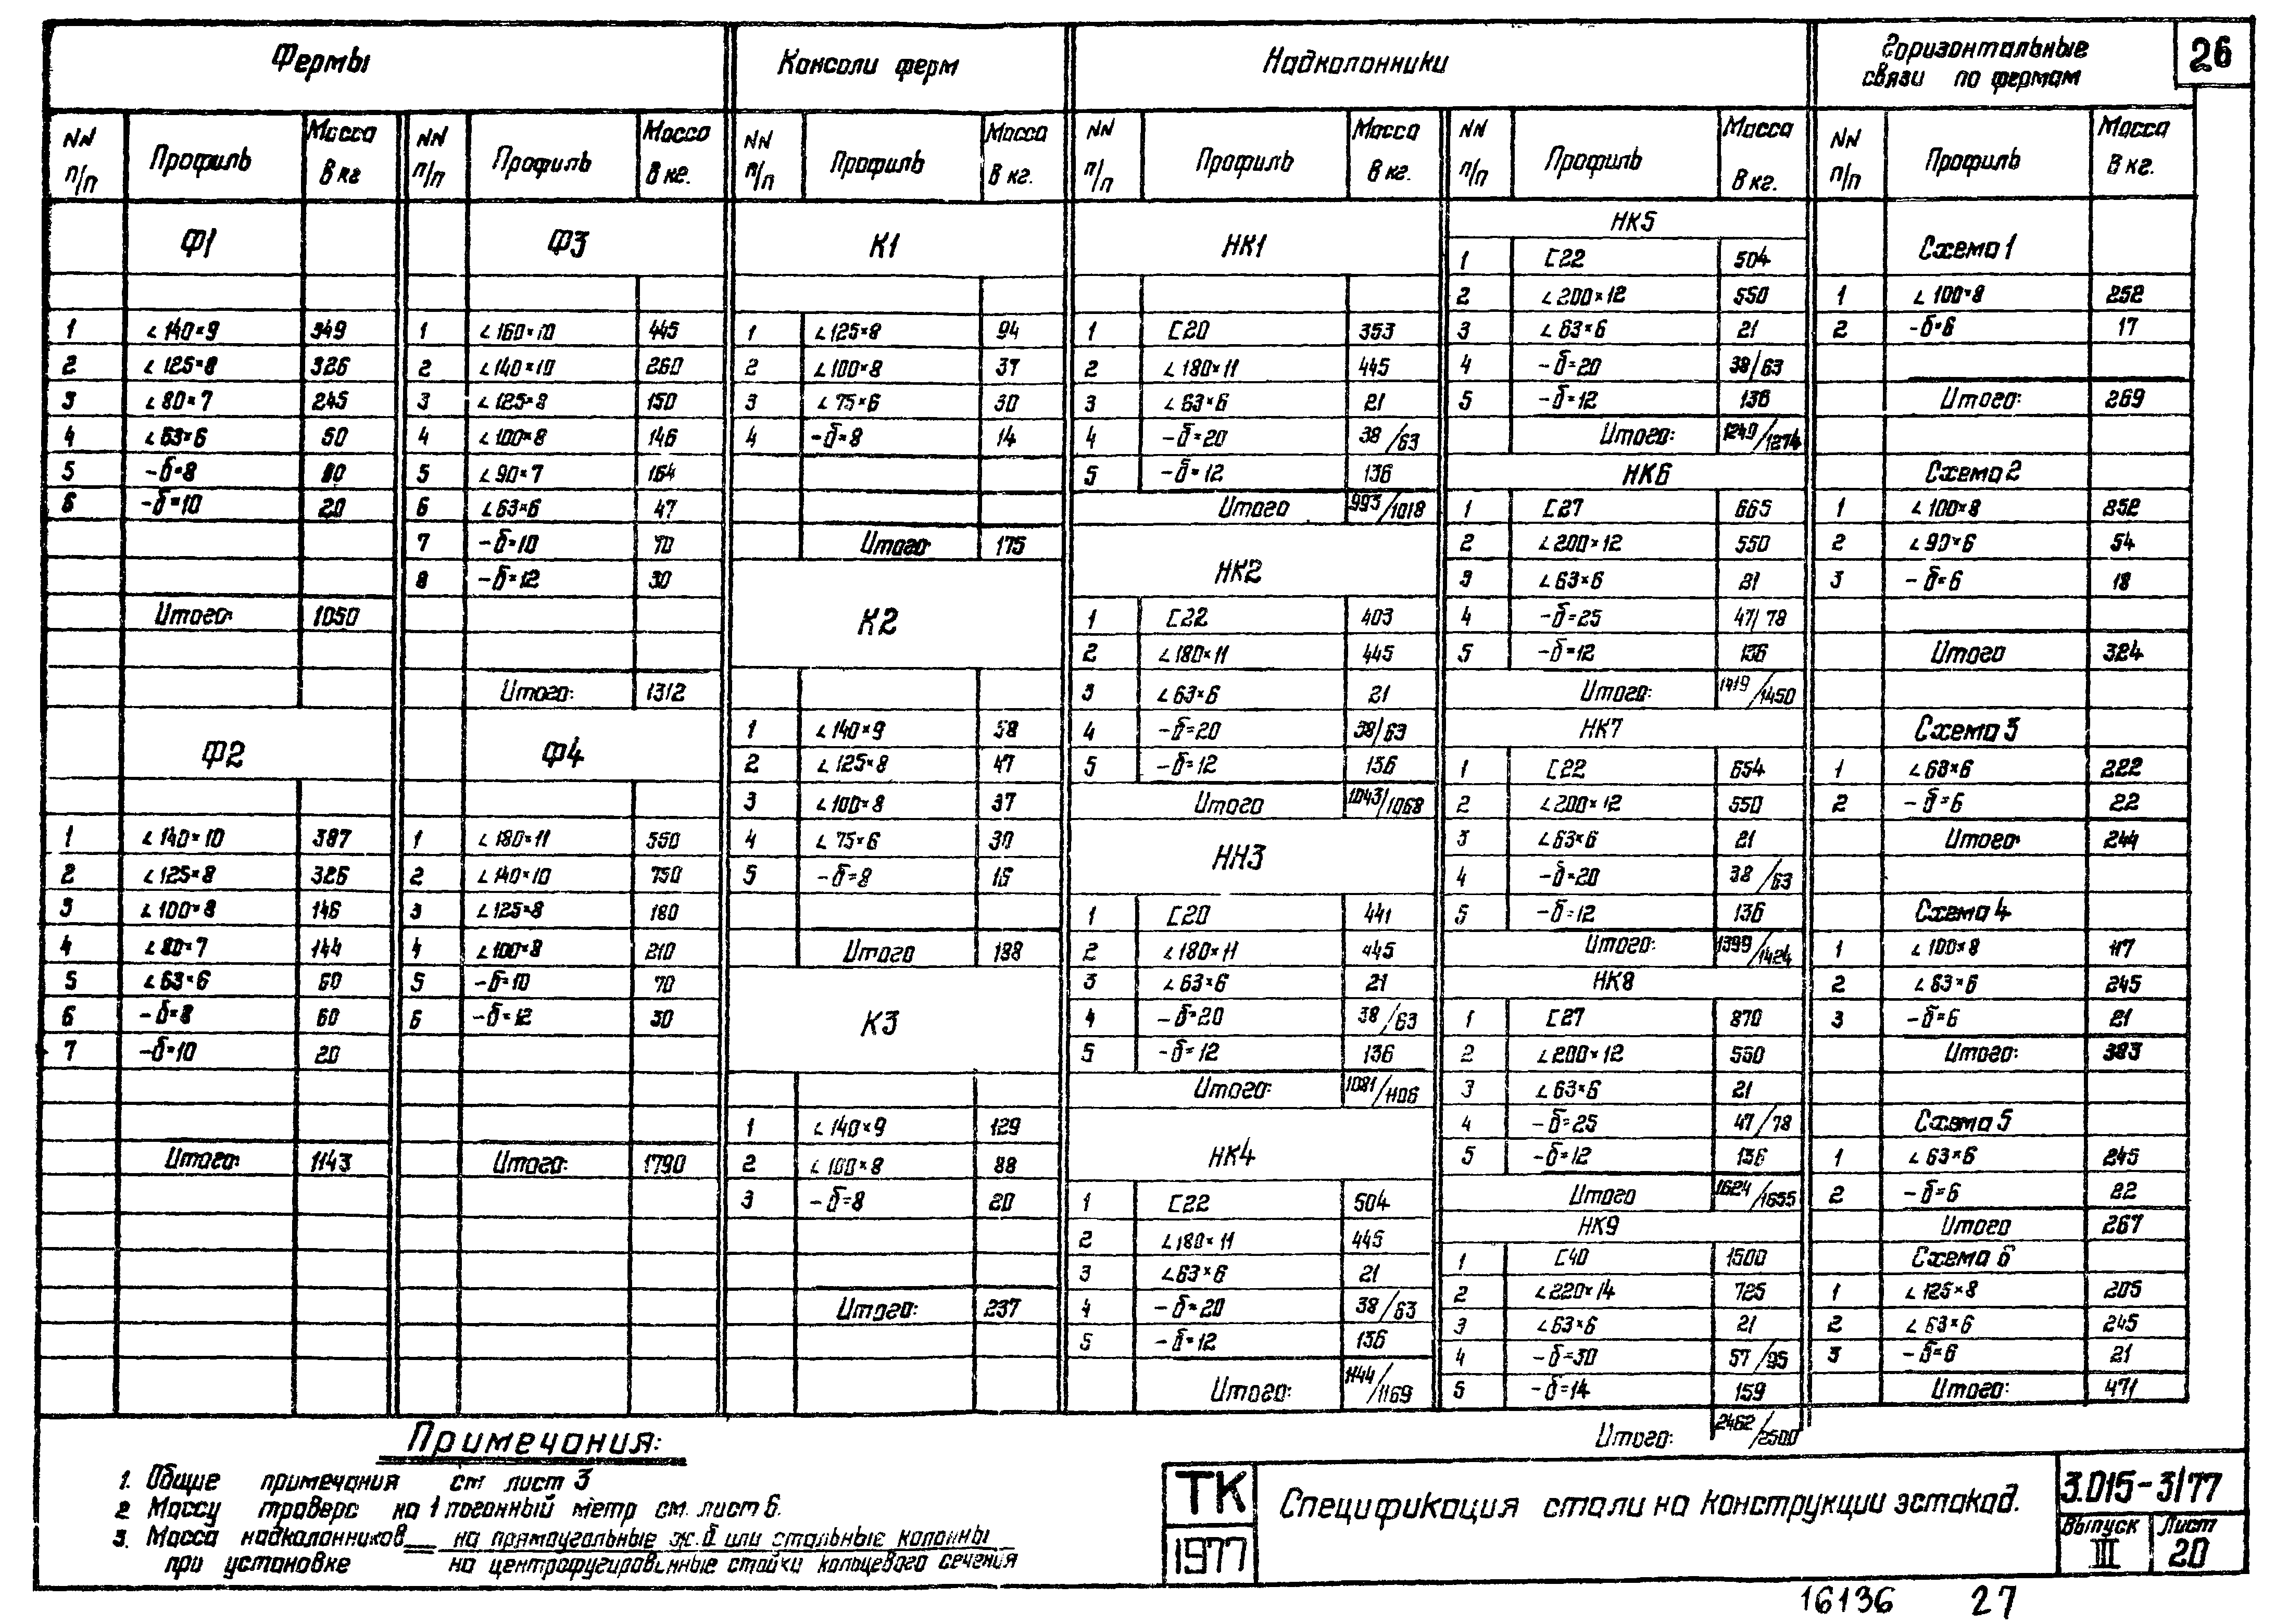 Фермы
Консоли ферм
Надколонники
Горизонтальные связи по фермам
26
NN п/п Профиль Масса в кг
NN п/п Профиль Масса в кг.
NN п/п Профиль Масса в кг.
NN п/п Профиль Масса в кг.
NN п/п Профиль Масса в кг.
NN п/п Профиль Масса в кг.
Ф1
1 ∠140×9 349
2 ∠125×8 326
3 ∠80×7 245
4 ∠63×6 50
5 -δ=8
6 -δ=10 20
Итого: 1050
Ф2
1 ∠140×10 387
2 ∠125×8 326
3 ∠100×8 146
4 ∠80×7 144
5 ∠63×6 60
6 -δ=8 60
7 -δ=10 20
Итого: 1143
Ф3
1 ∠160×10 445
2 ∠140×10 260
3 ∠125×8 150
4 ∠100×8 146
5 ∠90×7 164
6 ∠63×6 47
7 -δ=10 70
8 -δ=12 30
Итого: 1312
Ф4
1 ∠180×11 550
2 ∠140×10 750
3 ∠125×8 180
4 ∠100×8 210
5 -δ=10 70
6 -δ=12 30
Итого: 1790
К1
1 ∠125×8 94
2 ∠100×8 37
3 ∠75×6 30
4 -δ=8 14
Итого 175
К2
1 ∠140×9 58
2 ∠125×8 47
3 ∠100×8 37
4 ∠75×6 30
5 -δ=8 16
Итого 188
К3
1 ∠140×9 129
2 ∠100×8 88
3 -δ=8 20
Итого: 237
НК1
1 [20 353
2 ∠180×11 445
3 ∠63×6 21
4 -δ=20 38/63
5 -δ=12 136
Итого 993/1018
НК2
1 [22 403
2 ∠180×11 445
3 ∠63×6 21
4 -δ=20 38/63
5 -δ=12 136
Итого 1043/1068
НН3
1 [20 441
2 ∠180×11 445
3 ∠63×6 21
4 -δ=20 38/63
5 -δ=12 136
Итого: 1081/1106
НК4
1 [22 504
2 ∠180×11 445
3 ∠63×6 21
4 -δ=20 38/63
5 -δ=12 136
Итого: 1144/1169
НК5
1 [22 504
2 ∠200×12 550
3 ∠63×6 21
4 -δ=20 38/63
5 -δ=12 136
Итого: 1249/1274
НК6
1 [27 665
2 ∠200×12 550
3 ∠63×6 21
4 -δ=25 47/78
5 -δ=12 136
Итого: 1419/1450
НК7
1 [22 654
2 ∠200×12 550
3 ∠63×6 21
4 -δ=20 38/63
5 -δ=12 136
Итого: 1399/1424
НК8
1 [27 870
2 ∠200×12 550
3 ∠63×6 21
4 -δ=25 47/78
5 -δ=12 136
Итого 1624/1655
НК9
1 [40 1500
2 ∠220×14 725
3 ∠63×6 21
4 -δ=30 57/95
5 -δ=14 159
Итого: 2462/2500
Схема 1
1 ∠100×8 252
2 -δ=6 17
Итого: 269
Схема 2
1 ∠100×8 252
2 ∠90×6 54
3 -δ=6 18
Итого 324
Схема 3
1 ∠63×6 222
2 -δ=6 22
Итого: 244
Схема 4
1 ∠100×8 117
2 ∠63×6 245
3 -δ=6 21
Итого: 383
Схема 5
1 ∠63×6 245
2 -δ=6 22
Итого 267
Схема 6
1 ∠125×8 205
2 ∠63×6 245
3 -δ=6 21
Итого: 471
Примечания:
1. Общие примечания см лист 3
2 Массу траверс на 1 погонный метр см. лист 6.
3. Масса надколонников на прямоугольные ж.б или стальные колонны
при установке на центрофугированные стойки кольцевого сечения
ТК
1977
Спецификация стали на конструкции эстакад.
3.015-3/77
Выпуск III
Лист 20
16136 27